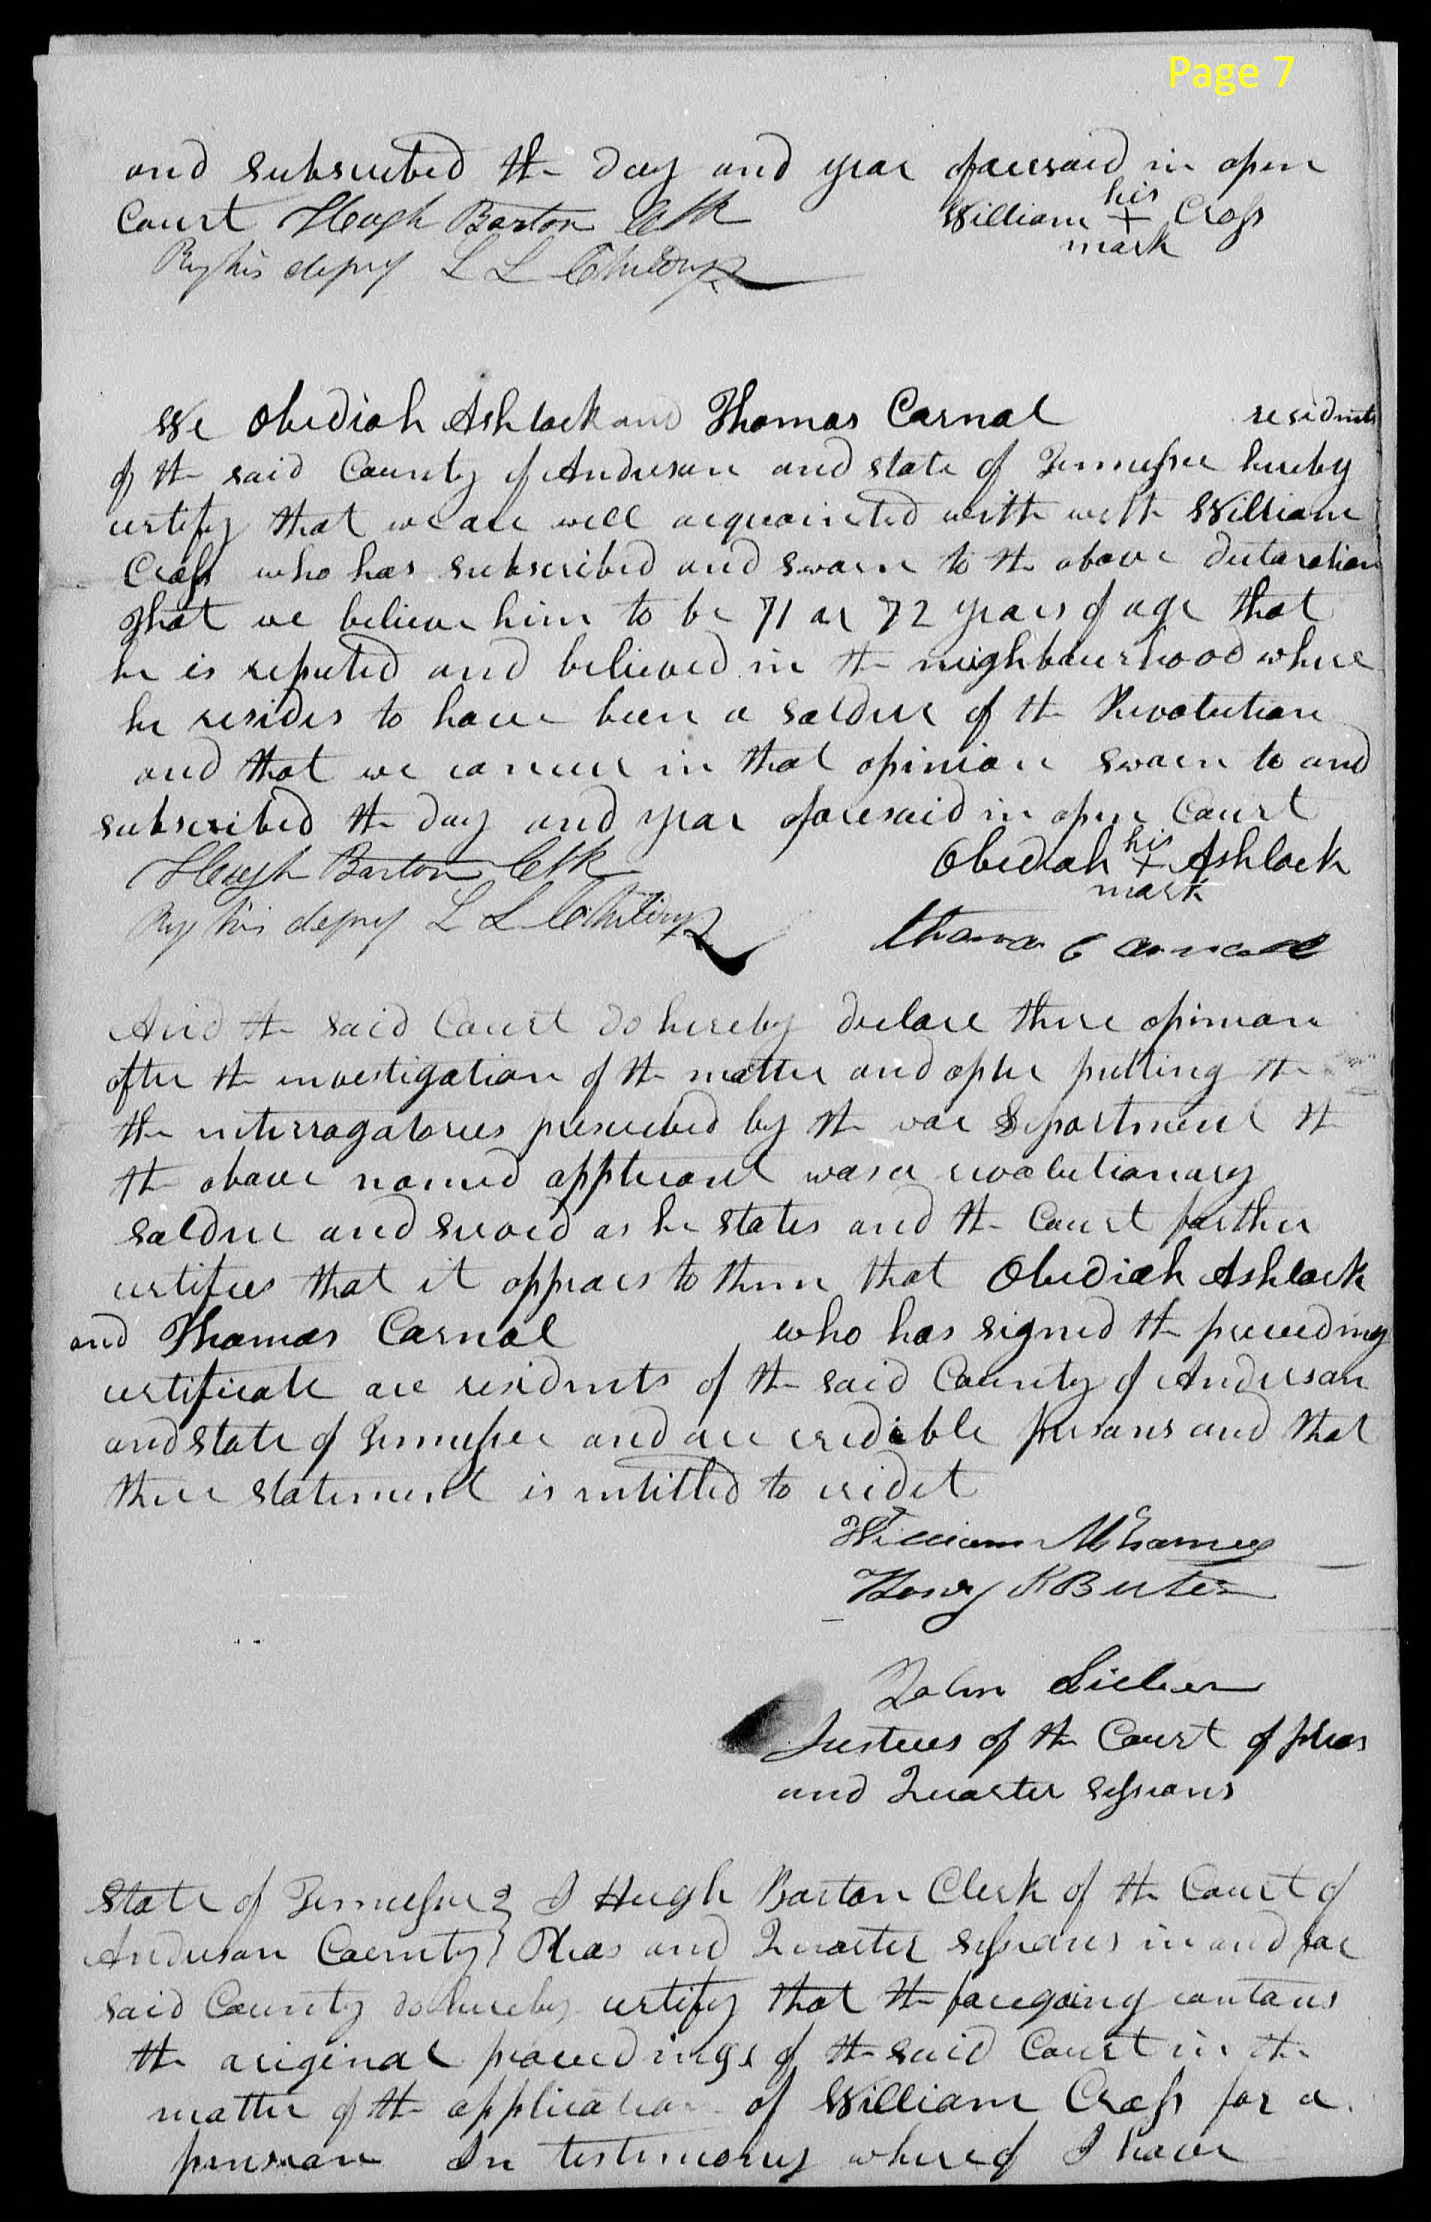 Page 7
and subscribed the day and year aforesaid in open
Court Hugh Barton Clk
William his + mark Cross
By his deputy L L
We Obediah Ashlock and Thomas Carnal residents
of the said County of Anderson and state of Tennessee hereby
certify that we are well acquainted with with William
Cross who has subscribed and sworn to the above declaration
That we believe him to be 71 or 72 years of age that
he is reputed and believed in the neighbourhood where
he resides to have been a soldier of the Revolution
and that we concur in that opinion sworn to and
subscribed the day and year aforesaid in open Court
Hugh Barton Clk
Obediah his + mark Ashlock
By his deputy L L
Thomas Carnall
And the said Court do hereby declare there opinion
after the investigation of the matter and after putting the
the interrogatories prescribed by the war Department the
the above named applicant was a revolutionary
soldier and served as he states and the Court further
certifies that it appears to them that Obediah Ashlock
and Thomas Carnal who has signed the preceeding
certificate are residents of the said County of Anderson
and state of Tennessee and are credible persons and that
there statement is intitled to credit
William
Henry
John
Justices of the Court of pleas
and Quarter sessions
State of Tennessee } I Hugh Barton Clerk of the Court of
Anderson County } Pleas and Quarter sessions in and for
said County do hereby certify that the foregoing contains
the original proceedings of the said Court in the
matter of the application of William Cross for a
pension In testimony whereof I have